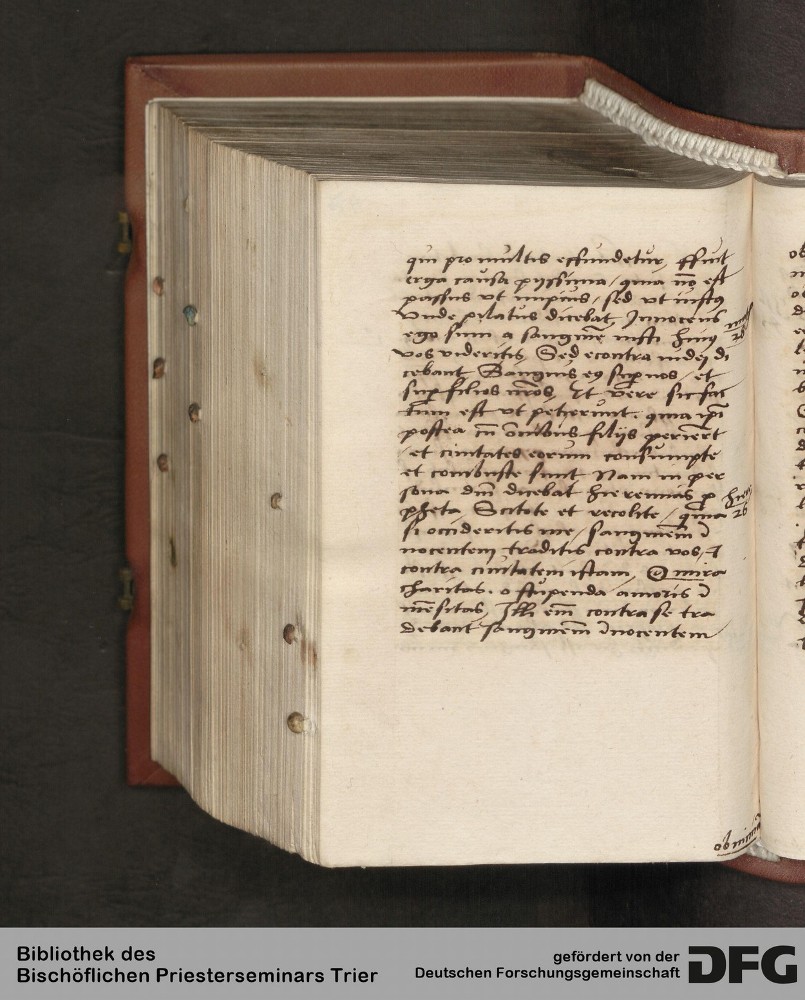 qui pro multis effundetur, Effuit
erga causa pyssima / quia nō est
passus vt impius / sed vt iustꝯ
Vnde pilatus dicebat Innocens
ego sum a sanguinē iusti huiꝯ
vos videritis, Sed econtra iudei di
cebant Sanguis eꝯ sup nos / et
sup filios nr̄os, Et vere sic fac
tum est vt petierunt. quia ip̄i
postea cū oībus filijs periert
/ et ciuitates eorum consumpte
et combuste sunt Nam in per
sona dn̄i dicebat hieremias p
pheta Scitote et recolite / quia
si occideritis me / sanguinem ī
nocentem traditis contra vos, &
contra ciuitatem istam, O mira
charitas. o stupenda amoris ī
mēsitas, Illi em̄ contra se tra
debant sanguinem īnocentem
hiere
26
Bibliothek des
Bischöflichen Priesterseminars Trier
gefördert von der
Deutschen Forschungsgemeinschaft
DFG